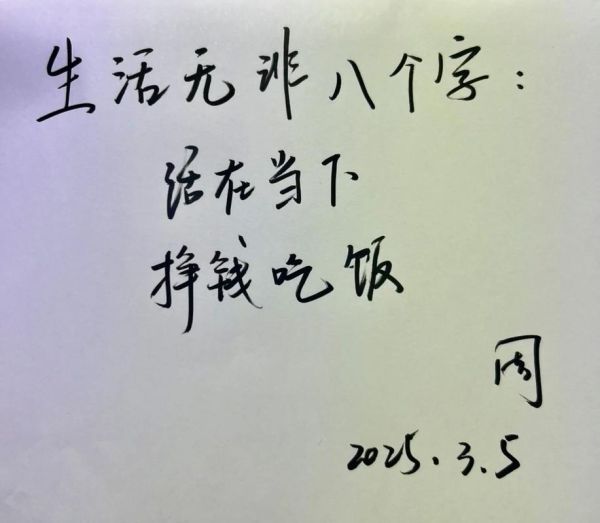 生活无非八个字：
活在当下
挣钱吃饭
周
2025.3.5